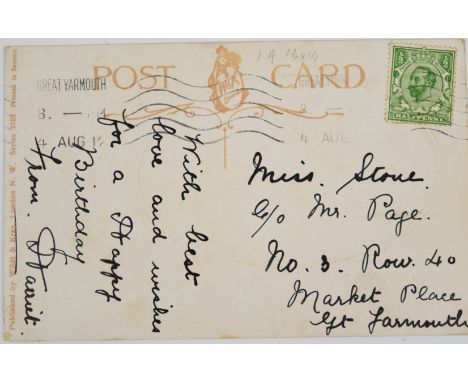 1A 14x14
POST CARD
GREAT YARMOUTH
8. —
4 AUG 1
8 —
4 AUG
HALFPENNY
With best
love and wishes
for a Happy
Birthday
From. Harriet.
Miss. Stone.
C/o Mr. Page.
No. 3. Row. 40
Market Place
Gt Yarmouth
Published by Wildt & Kray, London N. W. Series 2102 Printed in Saxony.